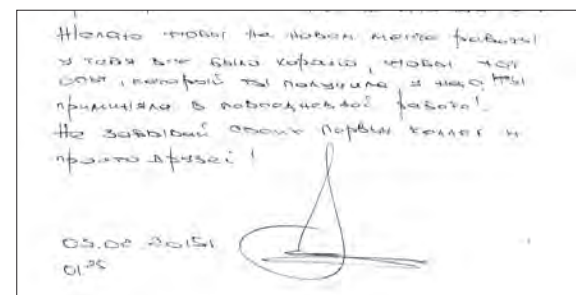 Желаю чтобы на новом месте работы
у тебя все было хорошо, чтобы тот
опыт, который ты получила у нас, ты
применяла в повседневной работе!
Не забывай своих первых коллег и
просто друзей!